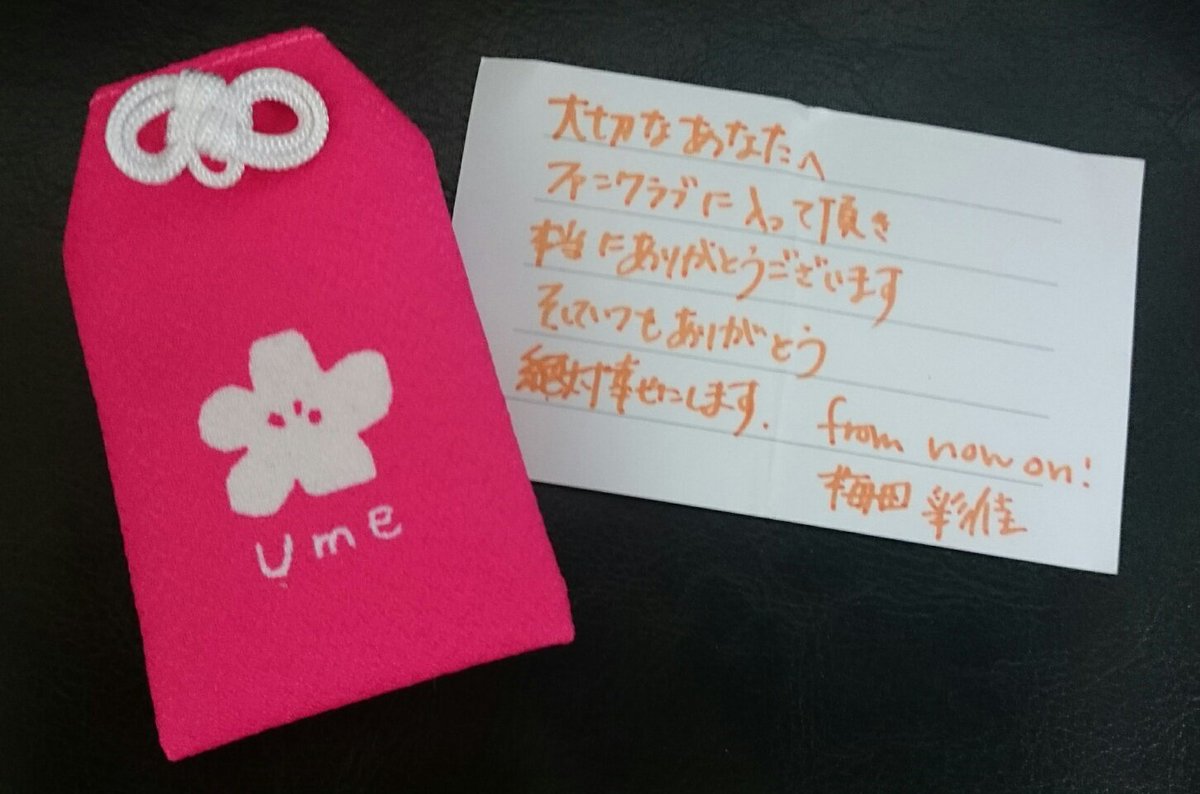 ume
大切なあなたへ
ファンクラブに入って頂き
本当にありがとうございます
そしていつもありがとう
絶対幸せにします.
from now on!
梅田 彩佳